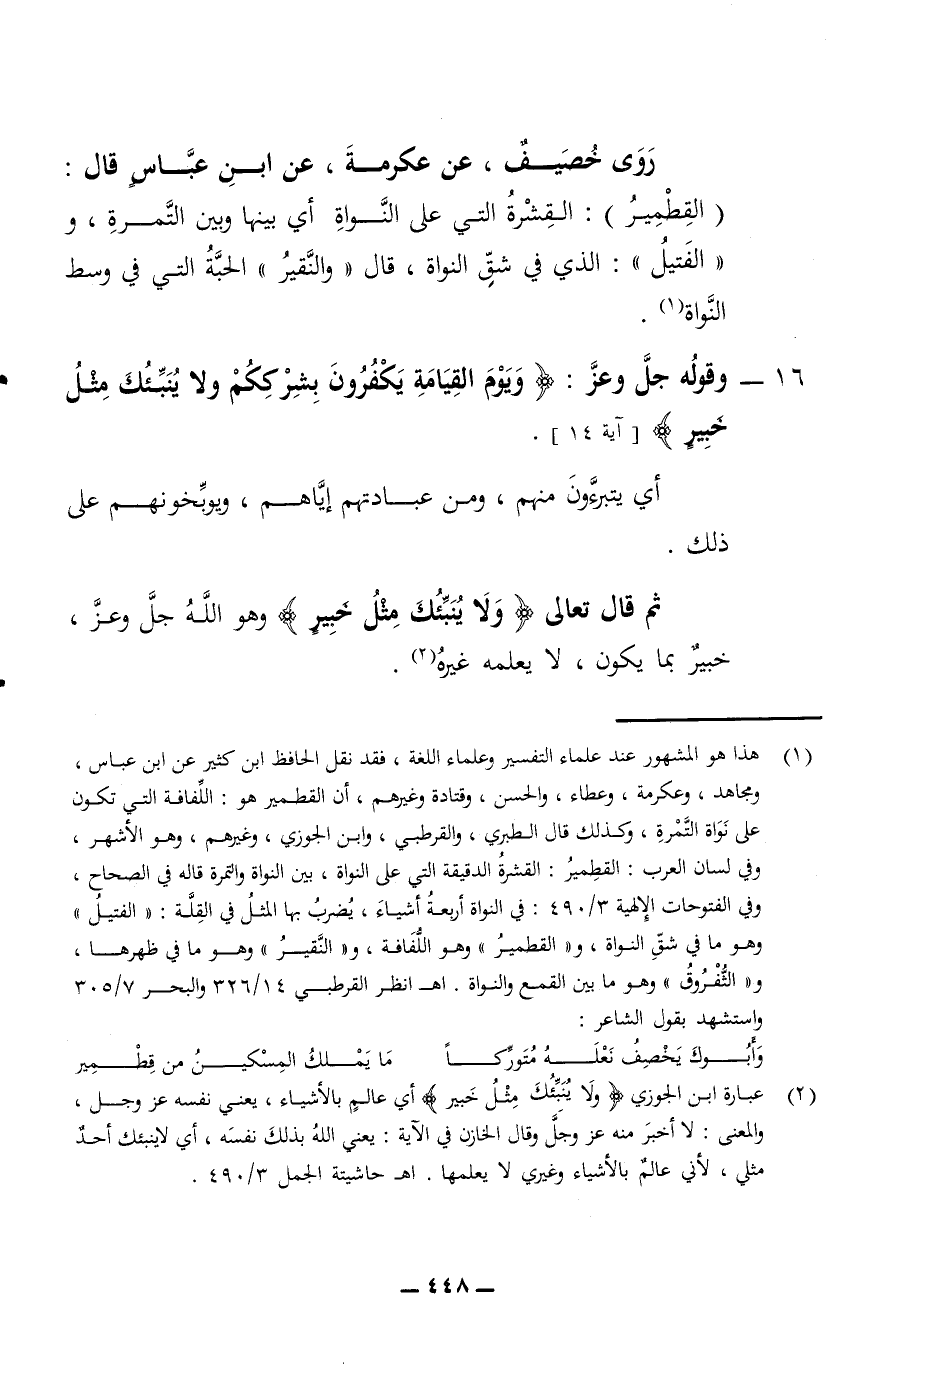 رَوَى خُصَيفٌ ، عن عكرمةَ ، عن ابنِ عبَّاسٍ قال :
( القِطْمِيرُ ) : القِشرةُ التي على النَّواةِ أي بينها وبين التَّمرةِ ، و
« الفَتيلُ » : الذي في شقِّ النواة ، قال « والنَّقيرُ » الحبَّةُ التي في وسط
النَّواة(١) .
١٦ ـ وقولُه جلَّ وعزَّ : ﴿ وَيَوْمَ القِيَامَةِ يَكْفُرُونَ بِشِرْكِكُمْ ولا يُنَبِّئُكَ مِثْلُ
خَبِيرٍ ﴾ [ آية ١٤ ] .
أي يتبرءَّونَ منهم ، ومن عبادتهم إيَّاهم ، ويوبِّخونهم على
ذلك .
ثم قال تعالى ﴿ وَلَا يُنَبِّئُكَ مِثْلُ خَبِيرٍ ﴾ وهو اللَّهُ جلَّ وعزَّ ،
خبيرٌ بما يكون ، لا يعلمه غيرهُ(٢) .
(١) هذا هو المشهور عند علماء التفسير وعلماء اللغة ، فقد نقل الحافظ ابن كثير عن ابن عباس ،
ومجاهد ، وعكرمة ، وعطاء ، والحسن ، وقتادة وغيرهم ، أن القطمير هو : اللِّفافة التي تكون
على نَوَاة التَّمْرة ، وكذلك قال الطبري ، والقرطبي ، وابن الجوزي ، وغيرهم ، وهو الأشهر ،
وفي لسان العرب : القطميرُ : القشرةُ الدقيقة التي على النواة ، بين النواة والتمرة قاله في الصحاح ،
وفي الفتوحات الإلهية ٤٩٠/٣ : في النواة أربعةُ أشياء ، يُضربُ بها المثلُ في القِلَّة : « الفتيلُ »
وهو ما في شقِّ النواة ، و« القطميرُ » وهو اللُّفَافة ، و« النَّقيرُ » وهو ما في ظهرها ،
و« الثُّفْروُقُ » وهو ما بين القمع والنواة . اهـ انظر القرطبي ٣٢٦/١٤ والبحر ٣٠٥/٧
واستشهد بقول الشاعر :
وَأَبُوكَ يَخْصِفُ نَعْلَهُ مُتَورِّكاً مَا يَمْلكُ المِسْكينُ من قِطْمِير
(٢) عبارة ابن الجوزي ﴿ ولَا يُنَبِّئُكَ مِثْلُ خبير ﴾ أي عالمٍ بالأشياء ، يعني نفسه عز وجل ،
والمعنى : لا أخبرَ منه عز وجلَّ وقال الخازن في الآية : يعني اللهُ بذلكَ نفسَه ، أي لاينبئك أحدٌ
مثلي ، لأني عالمٌ بالأشياء وغيري لا يعلمها . اهـ حاشيتة الجمل ٤٩٠/٣ .
ـ ٤٤٨ ـ